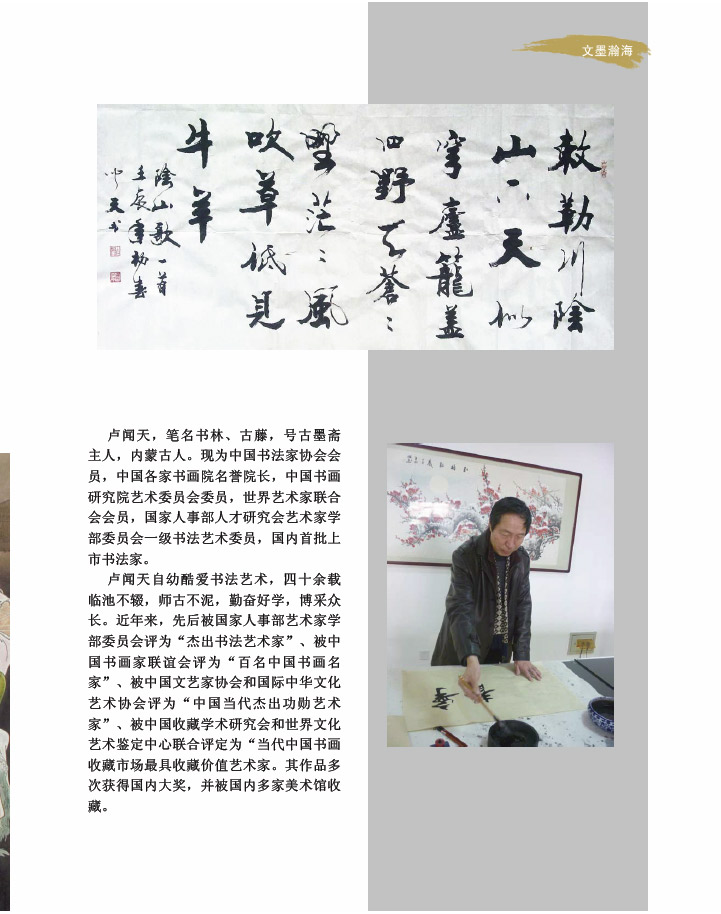 文墨瀚海
敕勒川陰
山下天似
穹廬籠蓋
四野天蒼〻
野茫〻風
吹草低見
牛羊
陰山歌一首
壬辰年初春
聞天书
卢闻天，笔名书林、古藤，号古墨斋
主人，内蒙古人。现为中国书法家协会会
员，中国各家书画院名誉院长，中国书画
研究院艺术委员会委员，世界艺术家联合
会会员，国家人事部人才研究会艺术家学
部委员会一级书法艺术委员，国内首批上
市书法家。
卢闻天自幼酷爱书法艺术，四十余载
临池不辍，师古不泥，勤奋好学，博采众
长。近年来，先后被国家人事部艺术家学
部委员会评为“杰出书法艺术家”、被中
国书画家联谊会评为“百名中国书画名
家”、被中国文艺家协会和国际中华文化
艺术协会评为“中国当代杰出功勋艺术
家”、被中国收藏学术研究会和世界文化
艺术鉴定中心联合评定为“当代中国书画
收藏市场最具收藏价值艺术家。其作品多
次获得国内大奖，并被国内多家美术馆收
藏。